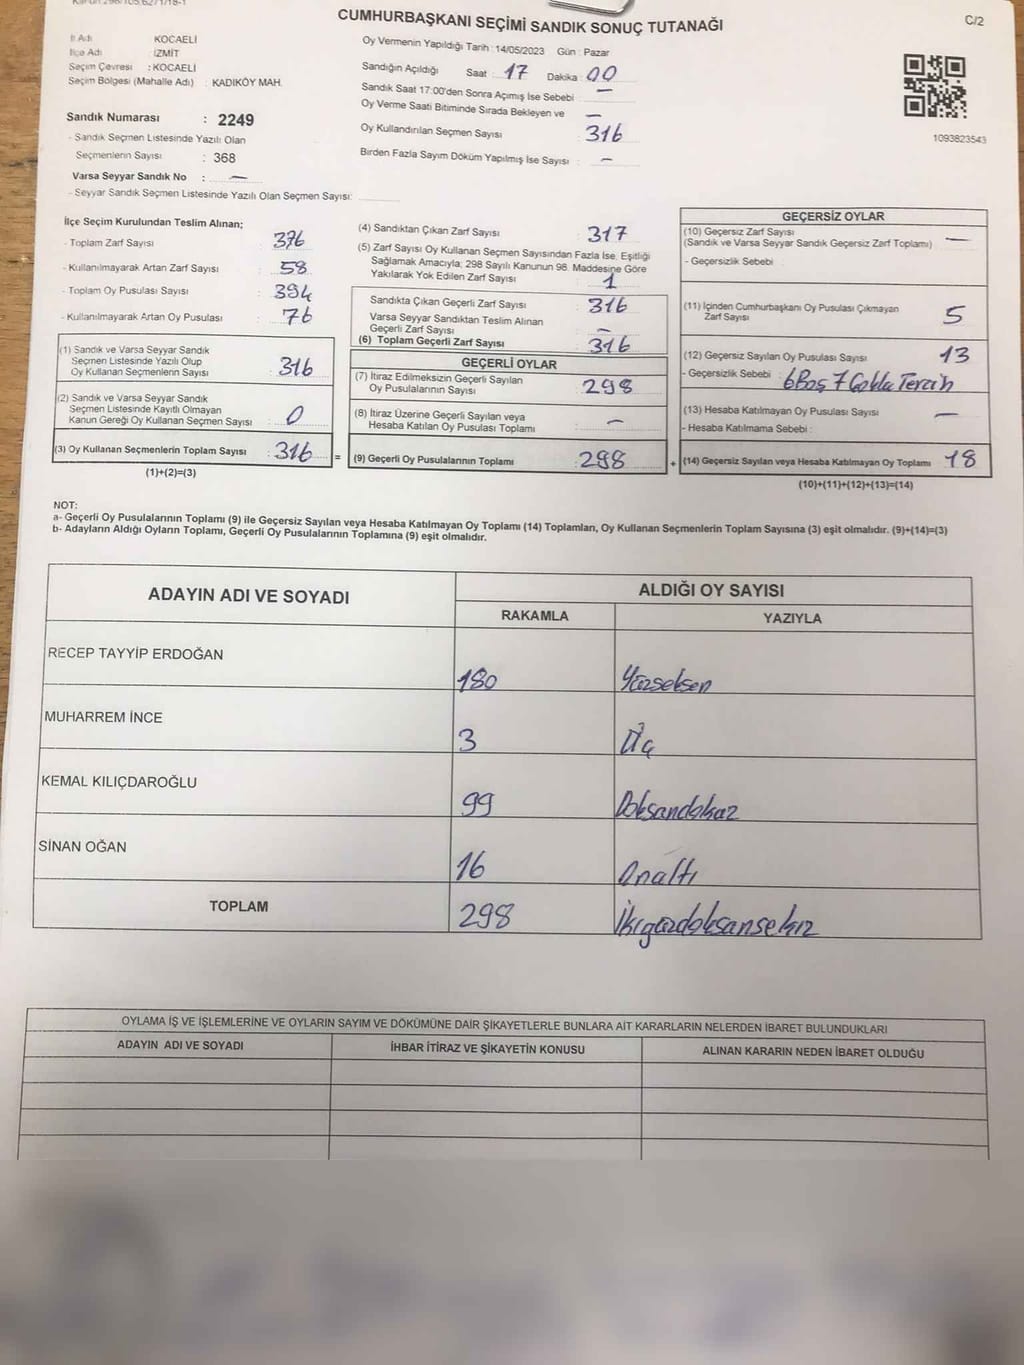 CUMHURBAŞKANI SEÇİMİ SANDIK SONUÇ TUTANAĞI
C/2
İl Adı KOCAELİ
İlçe Adı İZMİT
Seçim Çevresi : KOCAELİ
Seçim Bölgesi (Mahalle Adı) : KADIKÖY MAH.
Sandık Numarası : 2249
- Sandık Seçmen Listesinde Yazılı Olan
Seçmenlerin Sayısı : 368
Varsa Seyyar Sandık No : —
- Seyyar Sandık Seçmen Listesinde Yazılı Olan Seçmen Sayısı:
Oy Vermenin Yapıldığı Tarih : 14/05/2023 Gün : Pazar
Sandığın Açıldığı Saat : 17 Dakika : 00
Sandık Saat 17:00'den Sonra Açımış İse Sebebi : —
Oy Verme Saati Bitiminde Sırada Bekleyen ve —
Oy Kullandırılan Seçmen Sayısı 316
Birden Fazla Sayım Döküm Yapılmış İse Sayısı : —
1093823543
İlçe Seçim Kurulundan Teslim Alınan;
- Toplam Zarf Sayısı : 376
- Kullanılmayarak Artan Zarf Sayısı : 58
- Toplam Oy Pusulası Sayısı : 394
- Kullanılmayarak Artan Oy Pusulası : 76
(1) Sandık ve Varsa Seyyar Sandık
Seçmen Listesinde Yazılı Olup
Oy Kullanan Seçmenlerin Sayısı : 316
(2) Sandık ve Varsa Seyyar Sandık
Seçmen Listesinde Kayıtlı Olmayan
Kanun Gereği Oy Kullanan Seçmen Sayısı : 0
(3) Oy Kullanan Seçmenlerin Toplam Sayısı : 316 =
(1)+(2)=(3)
(4) Sandıktan Çıkan Zarf Sayısı : 317
(5) Zarf Sayısı Oy Kullanan Seçmen Sayısından Fazla İse, Eşitliği
Sağlamak Amacıyla; 298 Sayılı Kanunun 98. Maddesine Göre
Yakılarak Yok Edilen Zarf Sayısı : 1
Sandıkta Çıkan Geçerli Zarf Sayısı : 316
Varsa Seyyar Sandıktan Teslim Alınan
Geçerli Zarf Sayısı : —
(6) Toplam Geçerli Zarf Sayısı : 316
GEÇERLİ OYLAR
(7) İtiraz Edilmeksizin Geçerli Sayılan
Oy Pusulalarının Sayısı : 298
(8) İtiraz Üzerine Geçerli Sayılan veya
Hesaba Katılan Oy Pusulası Toplamı : —
(9) Geçerli Oy Pusulalarının Toplamı : 298 +
GEÇERSİZ OYLAR
(10) Geçersiz Zarf Sayısı
(Sandık ve Varsa Seyyar Sandık Geçersiz Zarf Toplamı) : —
- Geçersizlik Sebebi :
(11) İçinden Cumhurbaşkanı Oy Pusulası Çıkmayan
Zarf Sayısı : 5
(12) Geçersiz Sayılan Oy Pusulası Sayısı : 13
- Geçersizlik Sebebi : 6 Boş 7 Çokla Tercih
(13) Hesaba Katılmayan Oy Pusulası Sayısı : —
- Hesaba Katılmama Sebebi :
(14) Geçersiz Sayılan veya Hesaba Katılmayan Oy Toplamı : 18
(10)+(11)+(12)+(13)=(14)
NOT:
a- Geçerli Oy Pusulalarının Toplamı (9) ile Geçersiz Sayılan veya Hesaba Katılmayan Oy Toplamı (14) Toplamları, Oy Kullanan Seçmenlerin Toplam Sayısına (3) eşit olmalıdır. (9)+(14)=(3)
b- Adayların Aldığı Oyların Toplamı, Geçerli Oy Pusulalarının Toplamına (9) eşit olmalıdır.
ADAYIN ADI VE SOYADI ALDIĞI OY SAYISI
RAKAMLA YAZIYLA
RECEP TAYYİP ERDOĞAN 180 Yüzseksen
MUHARREM İNCE 3 Üç
KEMAL KILIÇDAROĞLU 99 Doksandokuz
SİNAN OĞAN 16 Onaltı
TOPLAM 298 İkiyüzdoksansekiz
OYLAMA İŞ VE İŞLEMLERİNE VE OYLARIN SAYIM VE DÖKÜMÜNE DAİR ŞİKAYETLERLE BUNLARA AİT KARARLARIN NELERDEN İBARET BULUNDUKLARI
ADAYIN ADI VE SOYADI İHBAR İTİRAZ VE ŞİKAYETİN KONUSU ALINAN KARARIN NEDEN İBARET OLDUĞU